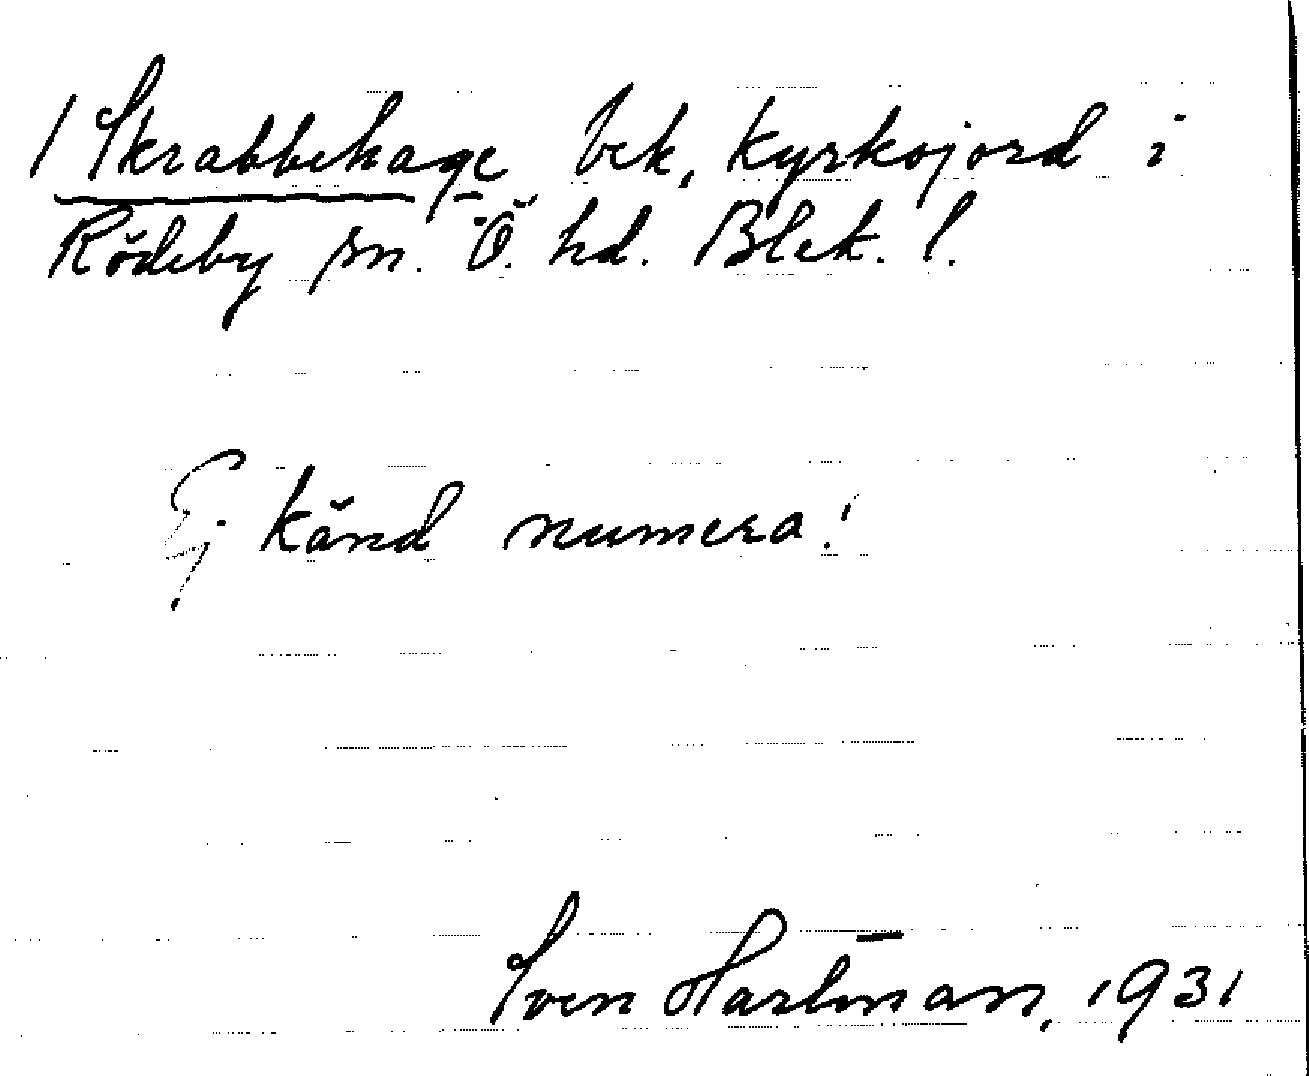 / Skrabbehage bek, Kyrkojord i
Rödeby sn. Ö. hd. Blek. l.
Ej känd numera!
Sven Hartman, 1931